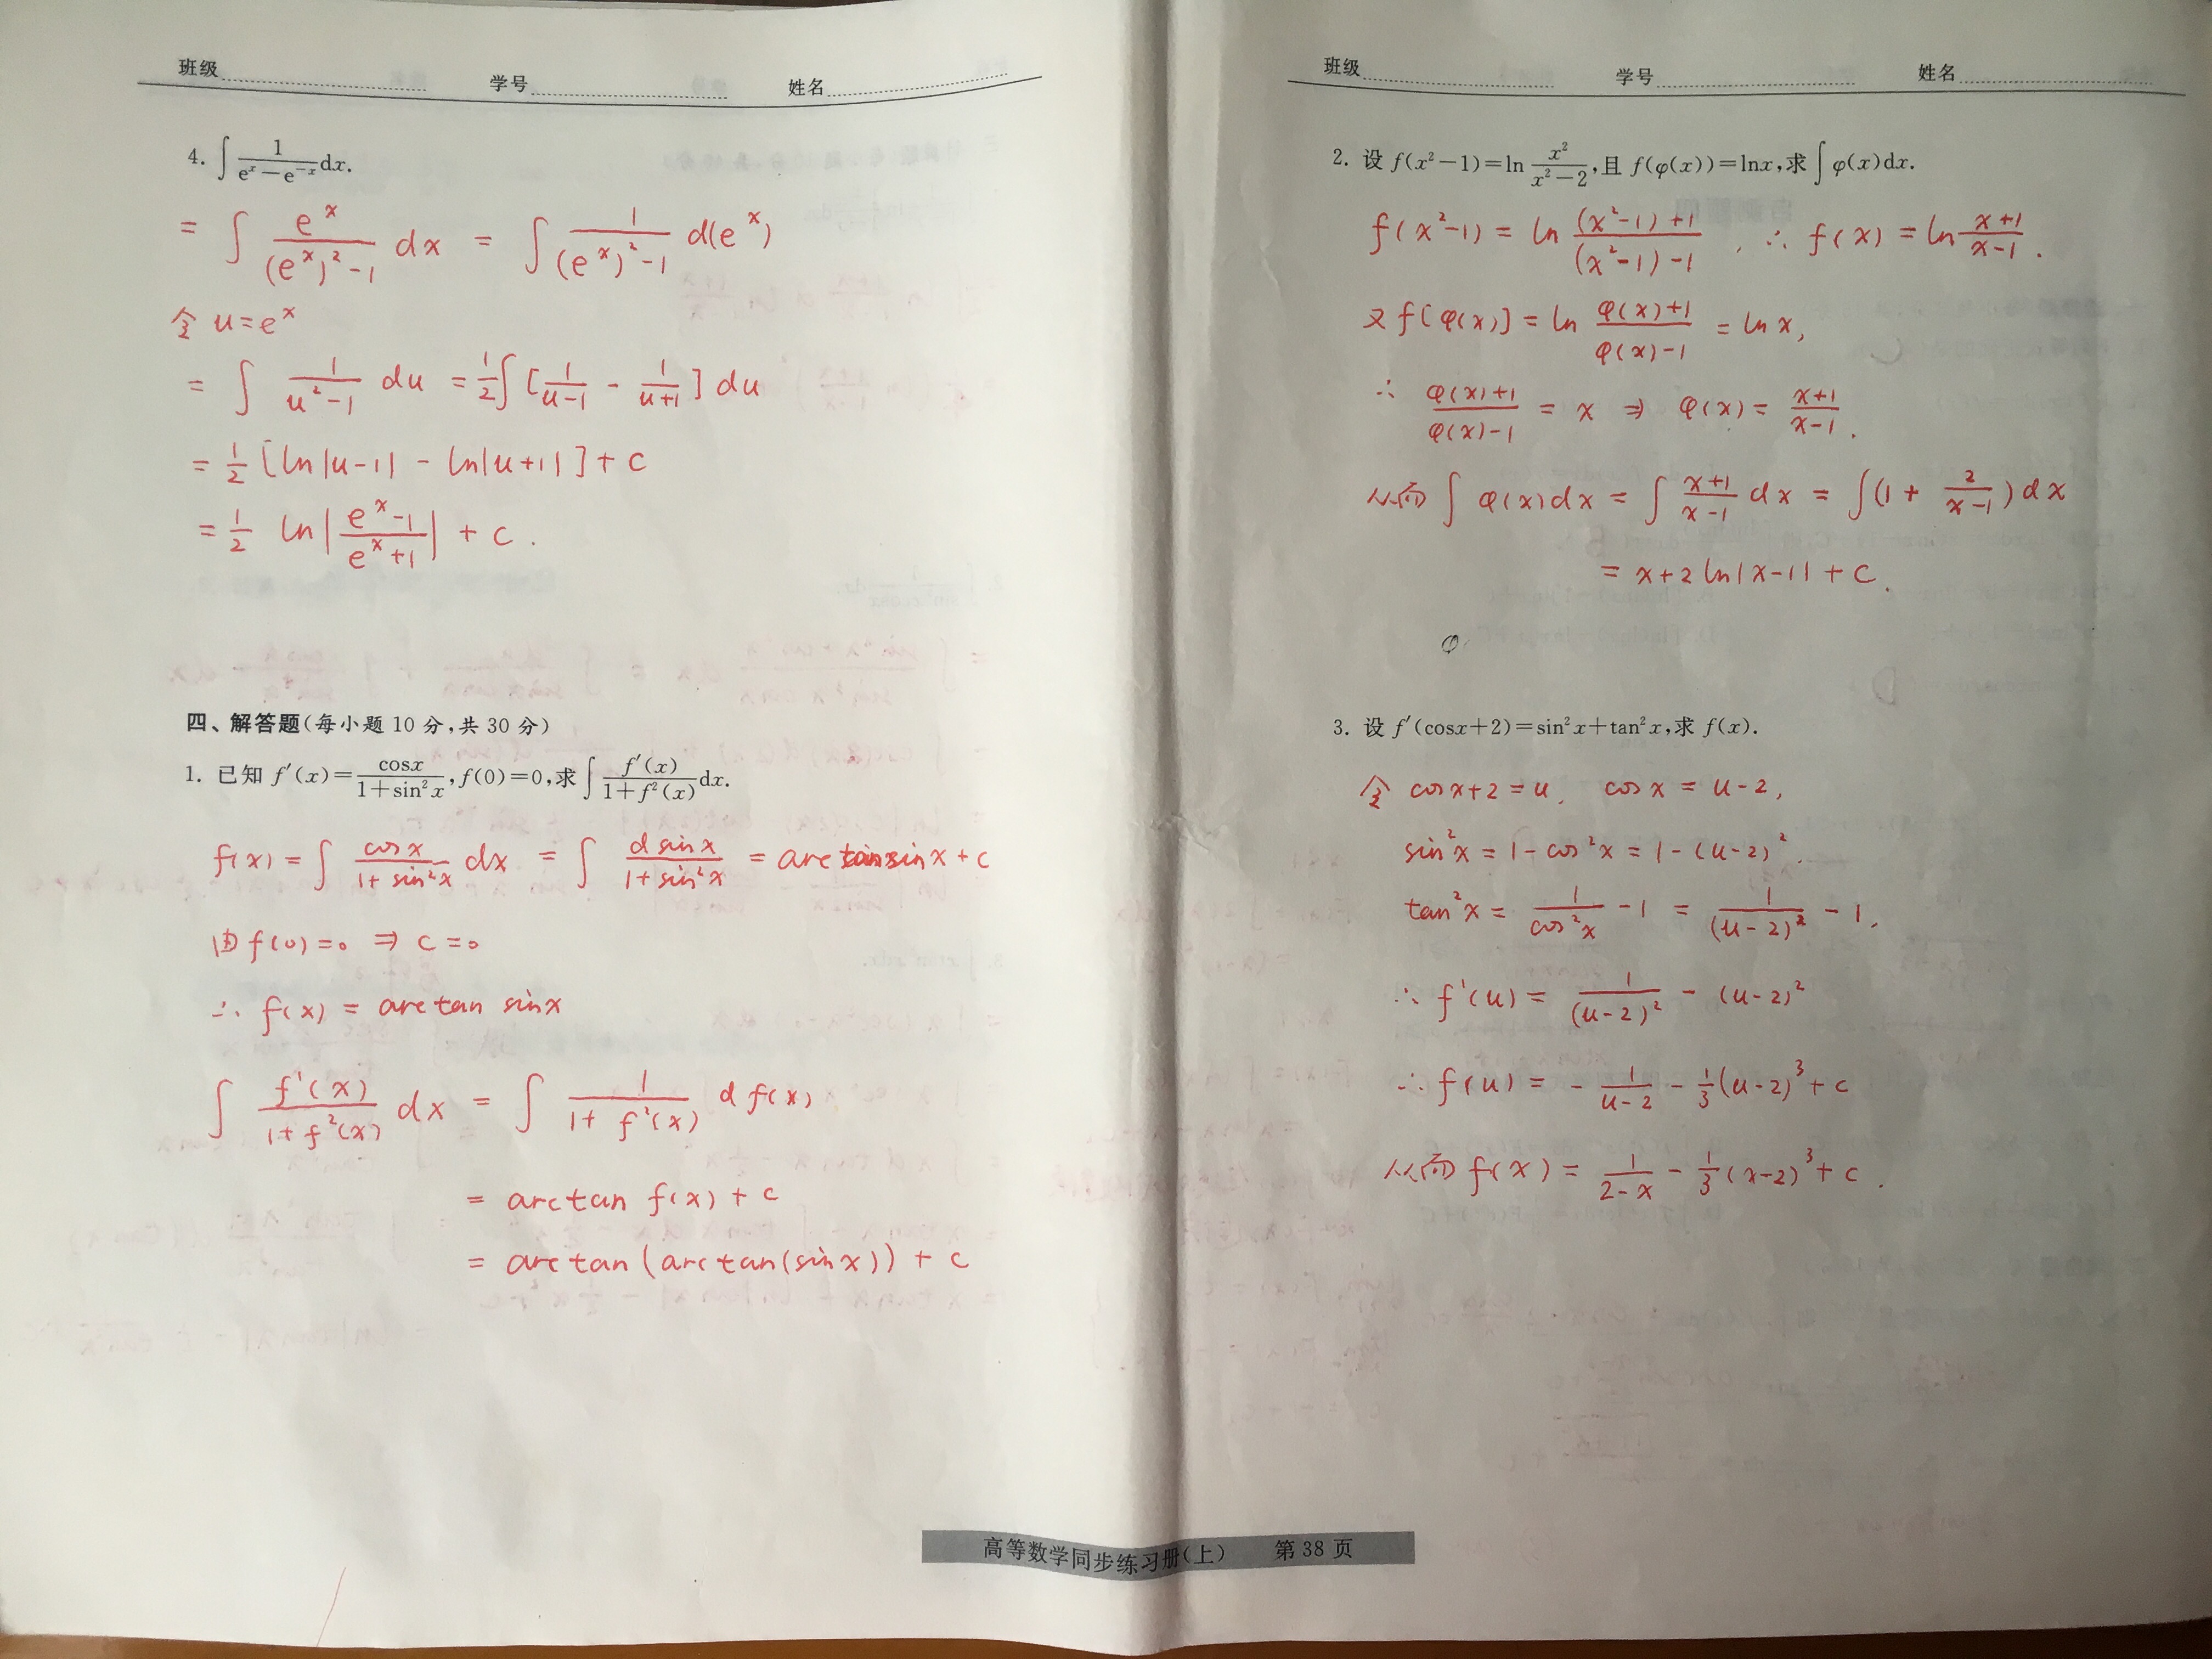 班级 学号 姓名
4. ∫ 1/(eˣ−e⁻ˣ) dx.
= ∫ eˣ/((eˣ)²-1) dx = ∫ 1/((eˣ)²-1) d(eˣ)
令 u=eˣ
= ∫ 1/(u²-1) du = 1/2 ∫ [1/(u-1) - 1/(u+1)] du
= 1/2 [ln|u-1| - ln|u+1|] + c
= 1/2 ln|(eˣ-1)/(eˣ+1)| + c .
四、解答题(每小题 10 分,共 30 分)
1. 已知 f′(x)=cosx/(1+sin²x),f(0)=0,求∫ f′(x)/(1+f²(x)) dx.
f(x) = ∫ cosx/(1+sin²x) dx = ∫ d sinx/(1+sin²x) = arc tan sinx + c
由 f(0)=0 ⇒ c=0
∴ f(x) = arc tan sinx
∫ f'(x)/(1+f²(x)) dx = ∫ 1/(1+f²(x)) d f(x)
= arc tan f(x) + c
= arc tan (arc tan(sinx)) + c
班级 学号 姓名
2. 设 f(x²−1)=ln x²/(x²−2),且 f(φ(x))=lnx,求∫φ(x)dx.
f(x²-1) = ln ((x²-1)+1)/((x²-1)-1) , ∴ f(x) = ln (x+1)/(x-1) .
又 f[φ(x)] = ln (φ(x)+1)/(φ(x)-1) = ln x,
∴ (φ(x)+1)/(φ(x)-1) = x ⇒ φ(x) = (x+1)/(x-1) .
从而 ∫ φ(x)dx = ∫ (x+1)/(x-1) dx = ∫(1 + 2/(x-1)) dx
= x+2 ln|x-1| + c .
φ
3. 设 f′(cosx+2)=sin²x+tan²x,求 f(x).
令 cosx+2=u, cosx = u-2,
sin²x = 1-cos²x = 1-(u-2)².
tan²x = 1/cos²x -1 = 1/(u-2)² - 1,
∴ f'(u) = 1/(u-2)² - (u-2)²
∴ f(u) = - 1/(u-2) - 1/3(u-2)³+c
从而 f(x) = 1/(2-x) - 1/3(x-2)³+c .
高等数学同步练习册(上) 第 38 页